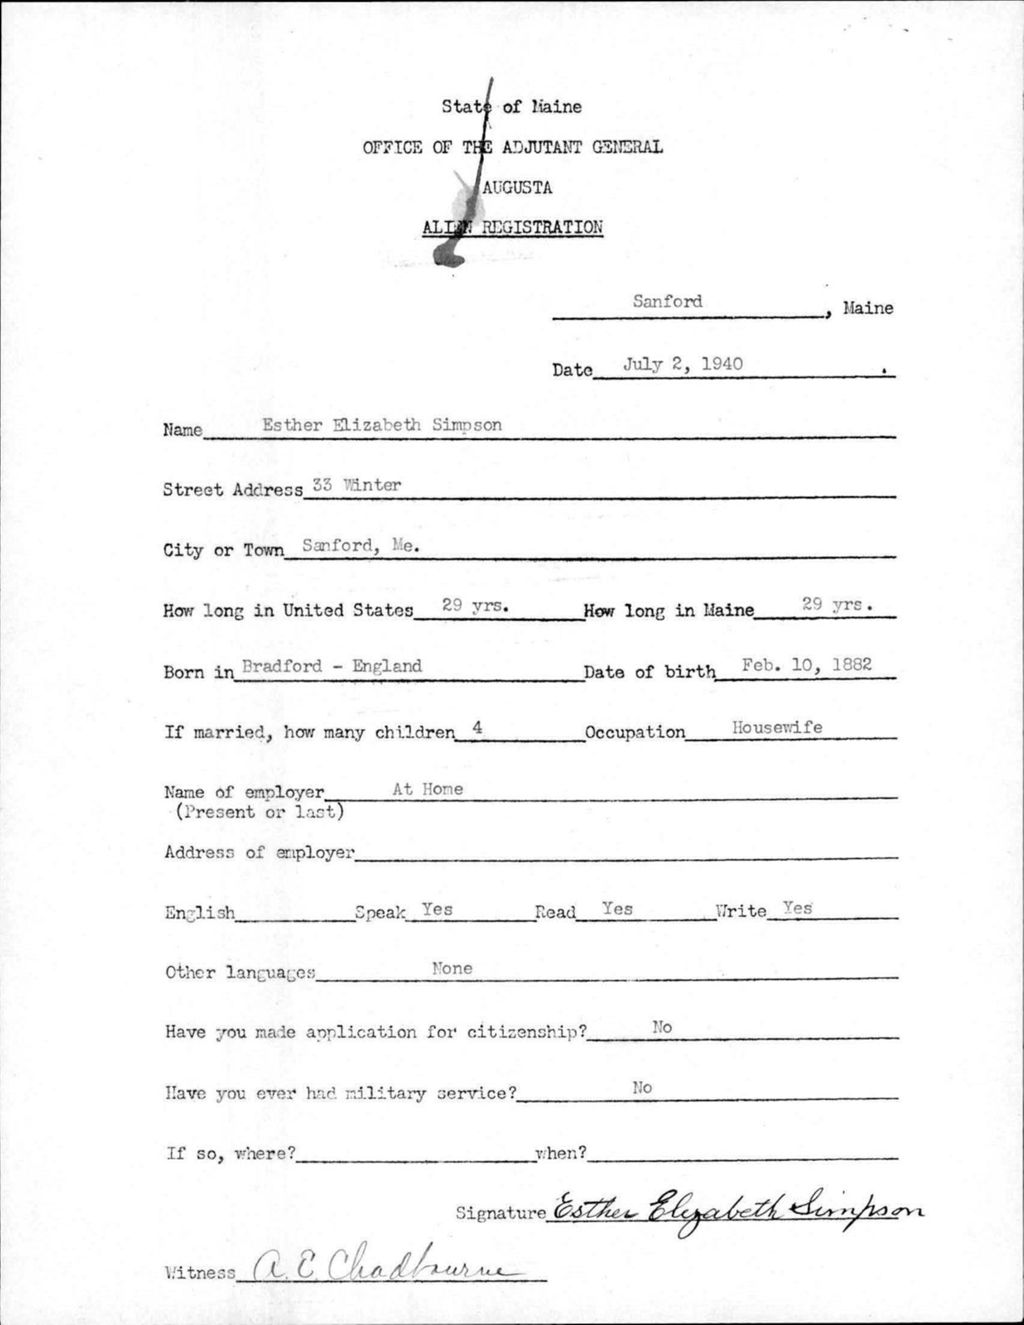 State of Maine
OFFICE OF THE ADJUTANT GENERAL
AUGUSTA
ALIEN REGISTRATION
Sanford, Maine
Date July 2, 1940.
Name Esther Elizabeth Simpson
Street Address 33 Winter
City or Town Sanford, Me.
How long in United States 29 yrs. How long in Maine 29 yrs.
Born in Bradford - England Date of birth Feb. 10, 1882
If married, how many children 4 Occupation Housewife
Name of employer At Home
(Present or last)
Address of employer
English Speak Yes Read Yes Write Yes
Other languages None
Have you made application for citizenship? No
Have you ever had military service? No
If so, where? when?
Signature Esther Elizabeth Simpson
Witness A. E. Chadbourne